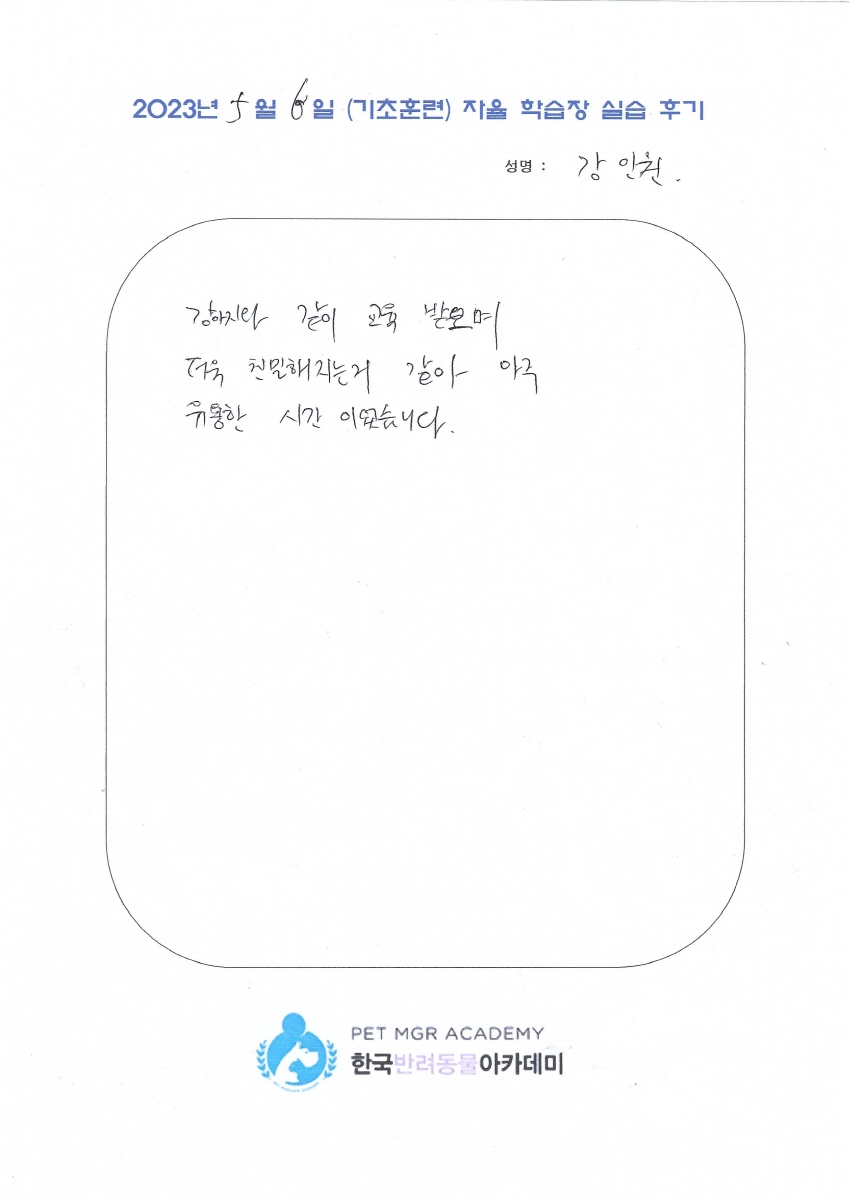 2023년 5월 6일 (기초훈련) 자율 학습장 실습 후기
성명 : 강인천.
강아지와 같이 교육 받으며
더욱 친밀해지는거 같아 아주
유통한 시간 이였습니다.
PET MGR ACADEMY
한국반려동물아카데미